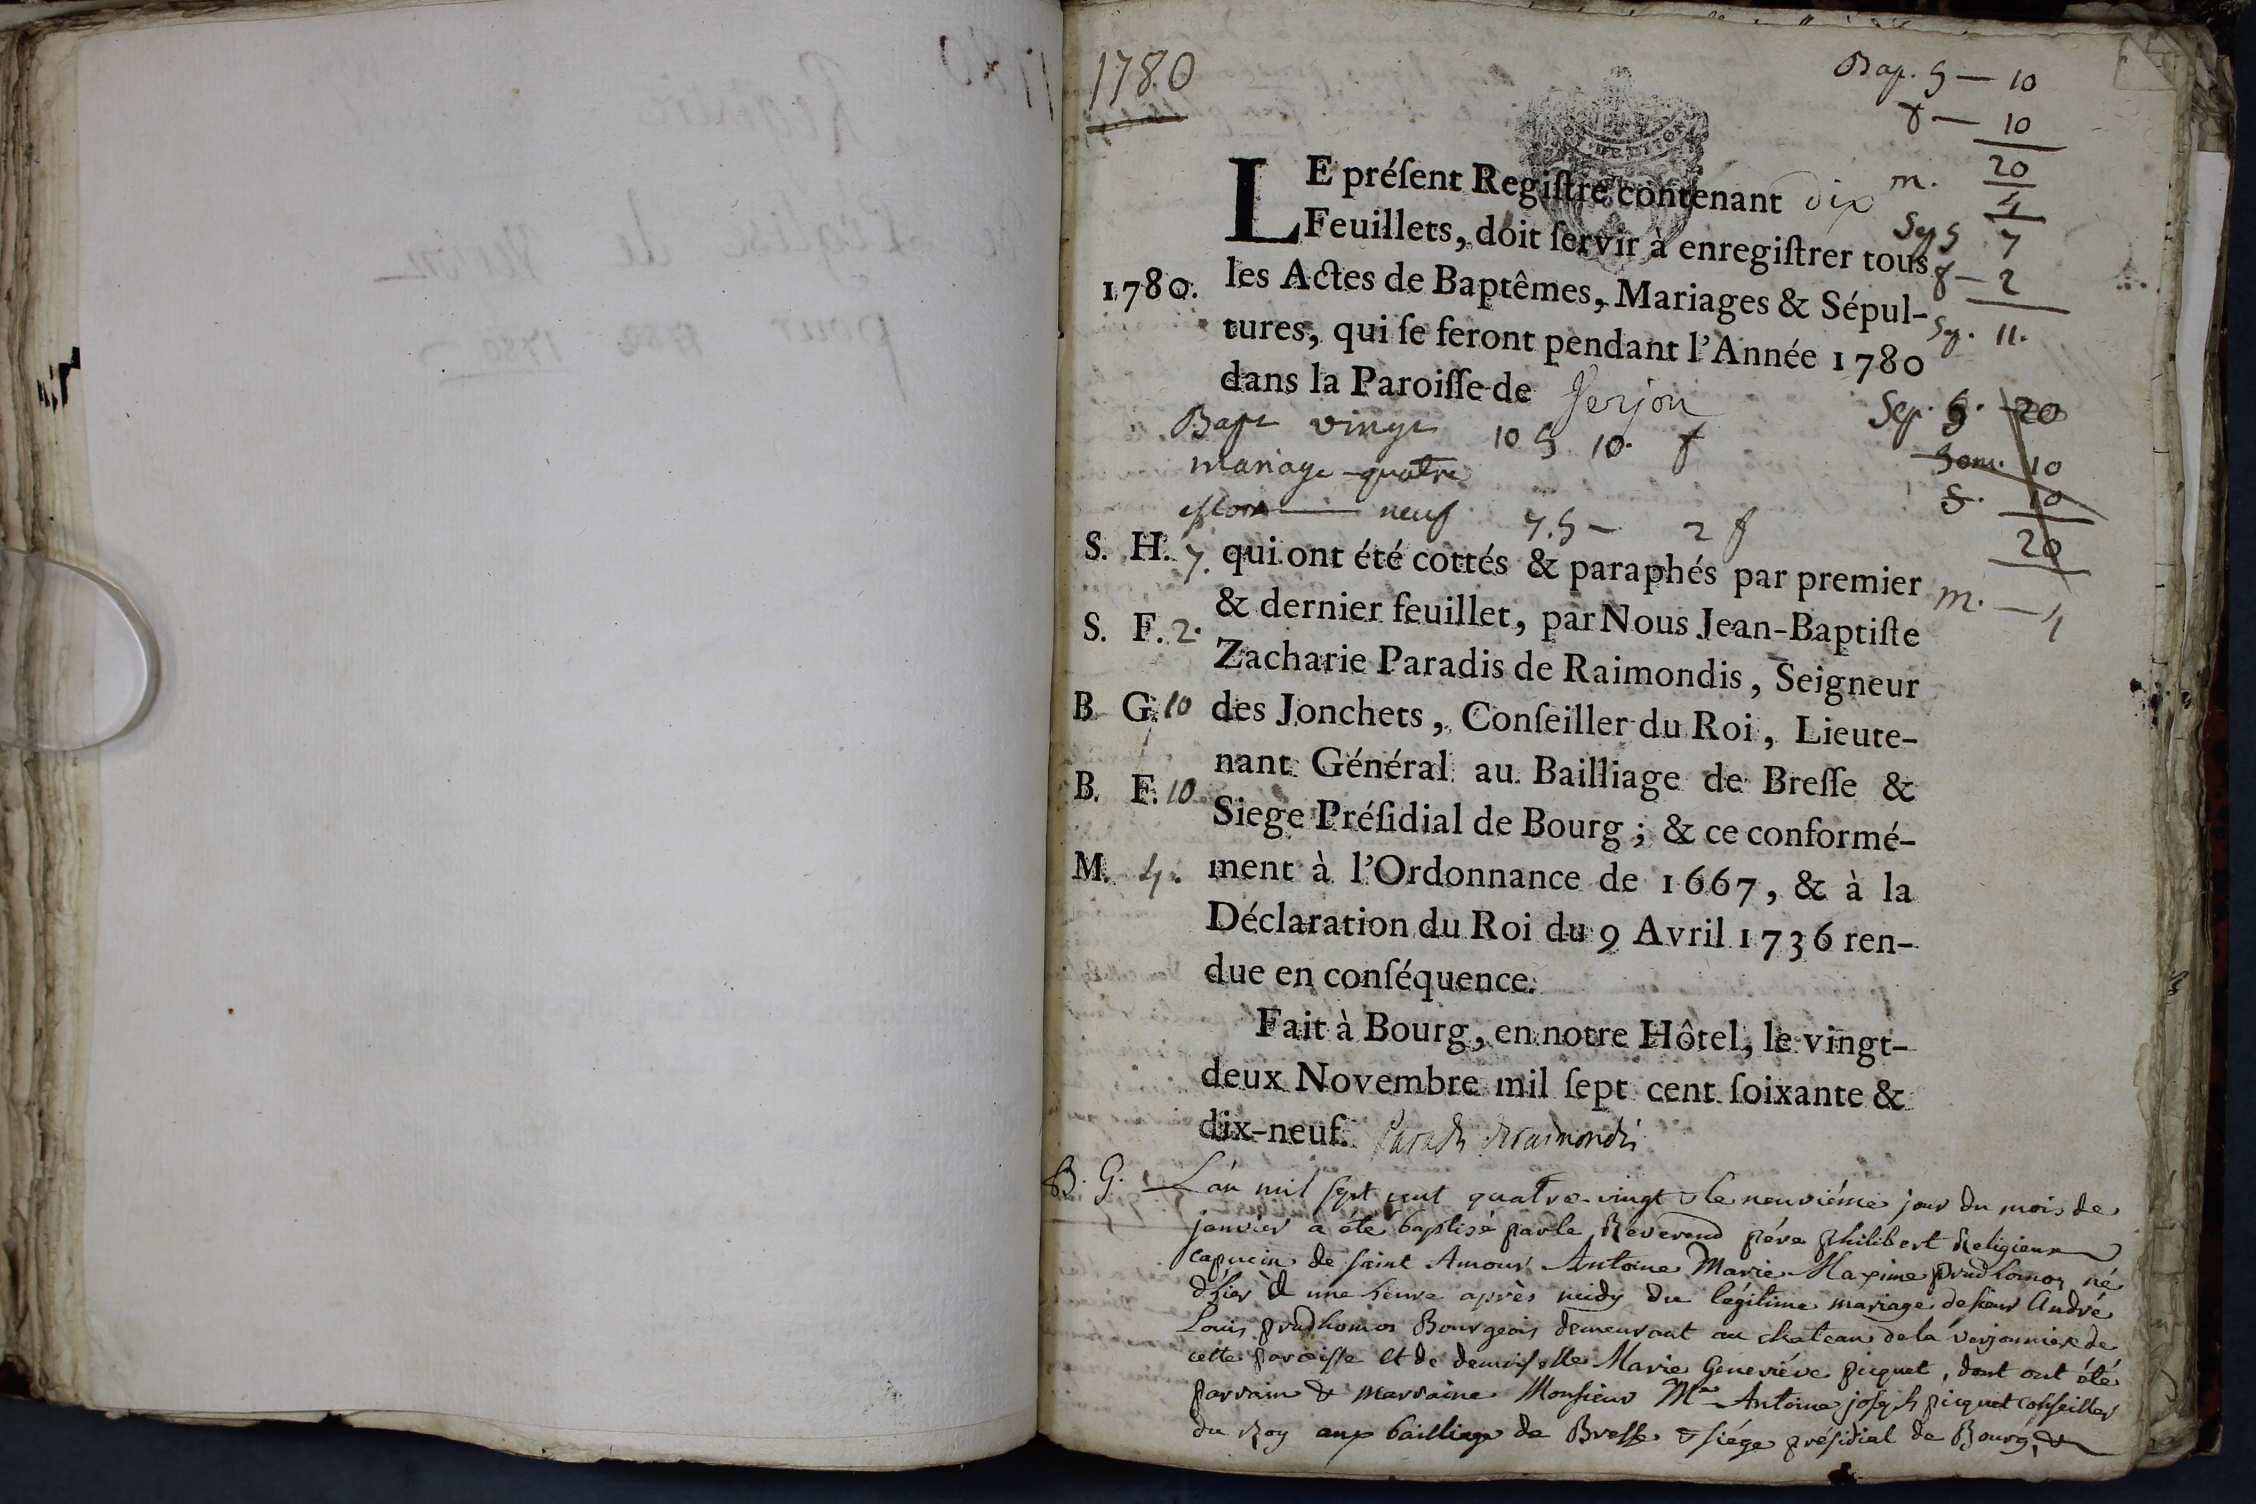 1780
Bap. G — 10
f — 10
20
m. 4
Sep G 7
f — 2
Sep. 11.
LE préſent Regiſtre contenant dix
Feuillets, doit ſervir à enregiſtrer tous
1780. les Actes de Baptêmes, Mariages & Sépul-
tures, qui ſe feront pendant l'Année 1780
dans la Paroiſſe de Verjon
Sep. G. 20
10
G. 10
20
m. — 4
Bapt vingt 10 G 10. f
mariage quatre
neuf 7. G — 2 f
S. H. 7. qui ont été cottés & paraphés par premier
& dernier feuillet, par Nous Jean-Baptiſte
S. F. 2. Zacharie Paradis de Raimondis, Seigneur
B G. 10 des Jonchets, Conſeiller du Roi, Lieute-
nant Général au Bailliage de Breſſe &
B. F. 10 Siege Préſidial de Bourg; & ce conformé-
M. 4. ment à l'Ordonnance de 1667, & à la
Déclaration du Roi du 9 Avril 1736 ren-
due en conſéquence.
Fait à Bourg, en notre Hôtel, le vingt-
deux Novembre mil ſept cent ſoixante &
dix-neuf. Paradis deraimondis
B. G. L'an mil sept cent quatre-vingt & le neuviéme jour du mois de
janvier a été baptisé par le Reverend pére philibert Religieux
capucin de saint Amour Antoine Marie Maxime prudhomo, né
d'hier à une heure après midy du légitime mariage de sieur André
Louis prudhomos Bourgeois demeurant au chateau de la verjonniere de
cette paroisse et de demoiselle Marie Geneviéve picquet, dont ont été
parrain & marraine Monsieur Mre Antoine joseph picquet conseiller
du Roy aux bailliage de Bresse & siége présidial de Bourg, &